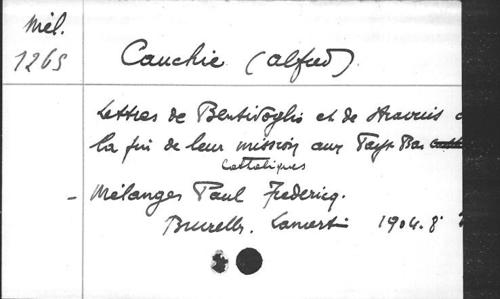 Mél.
1265
Cauchie (Alfred)
Lettres de Bentivoglio et de Stravius
la fin de leur mission aux Pays-Bas
Catholiques
- Mélanges Paul Fredericq.
Bruxelles. Lamertin 1904. 8°